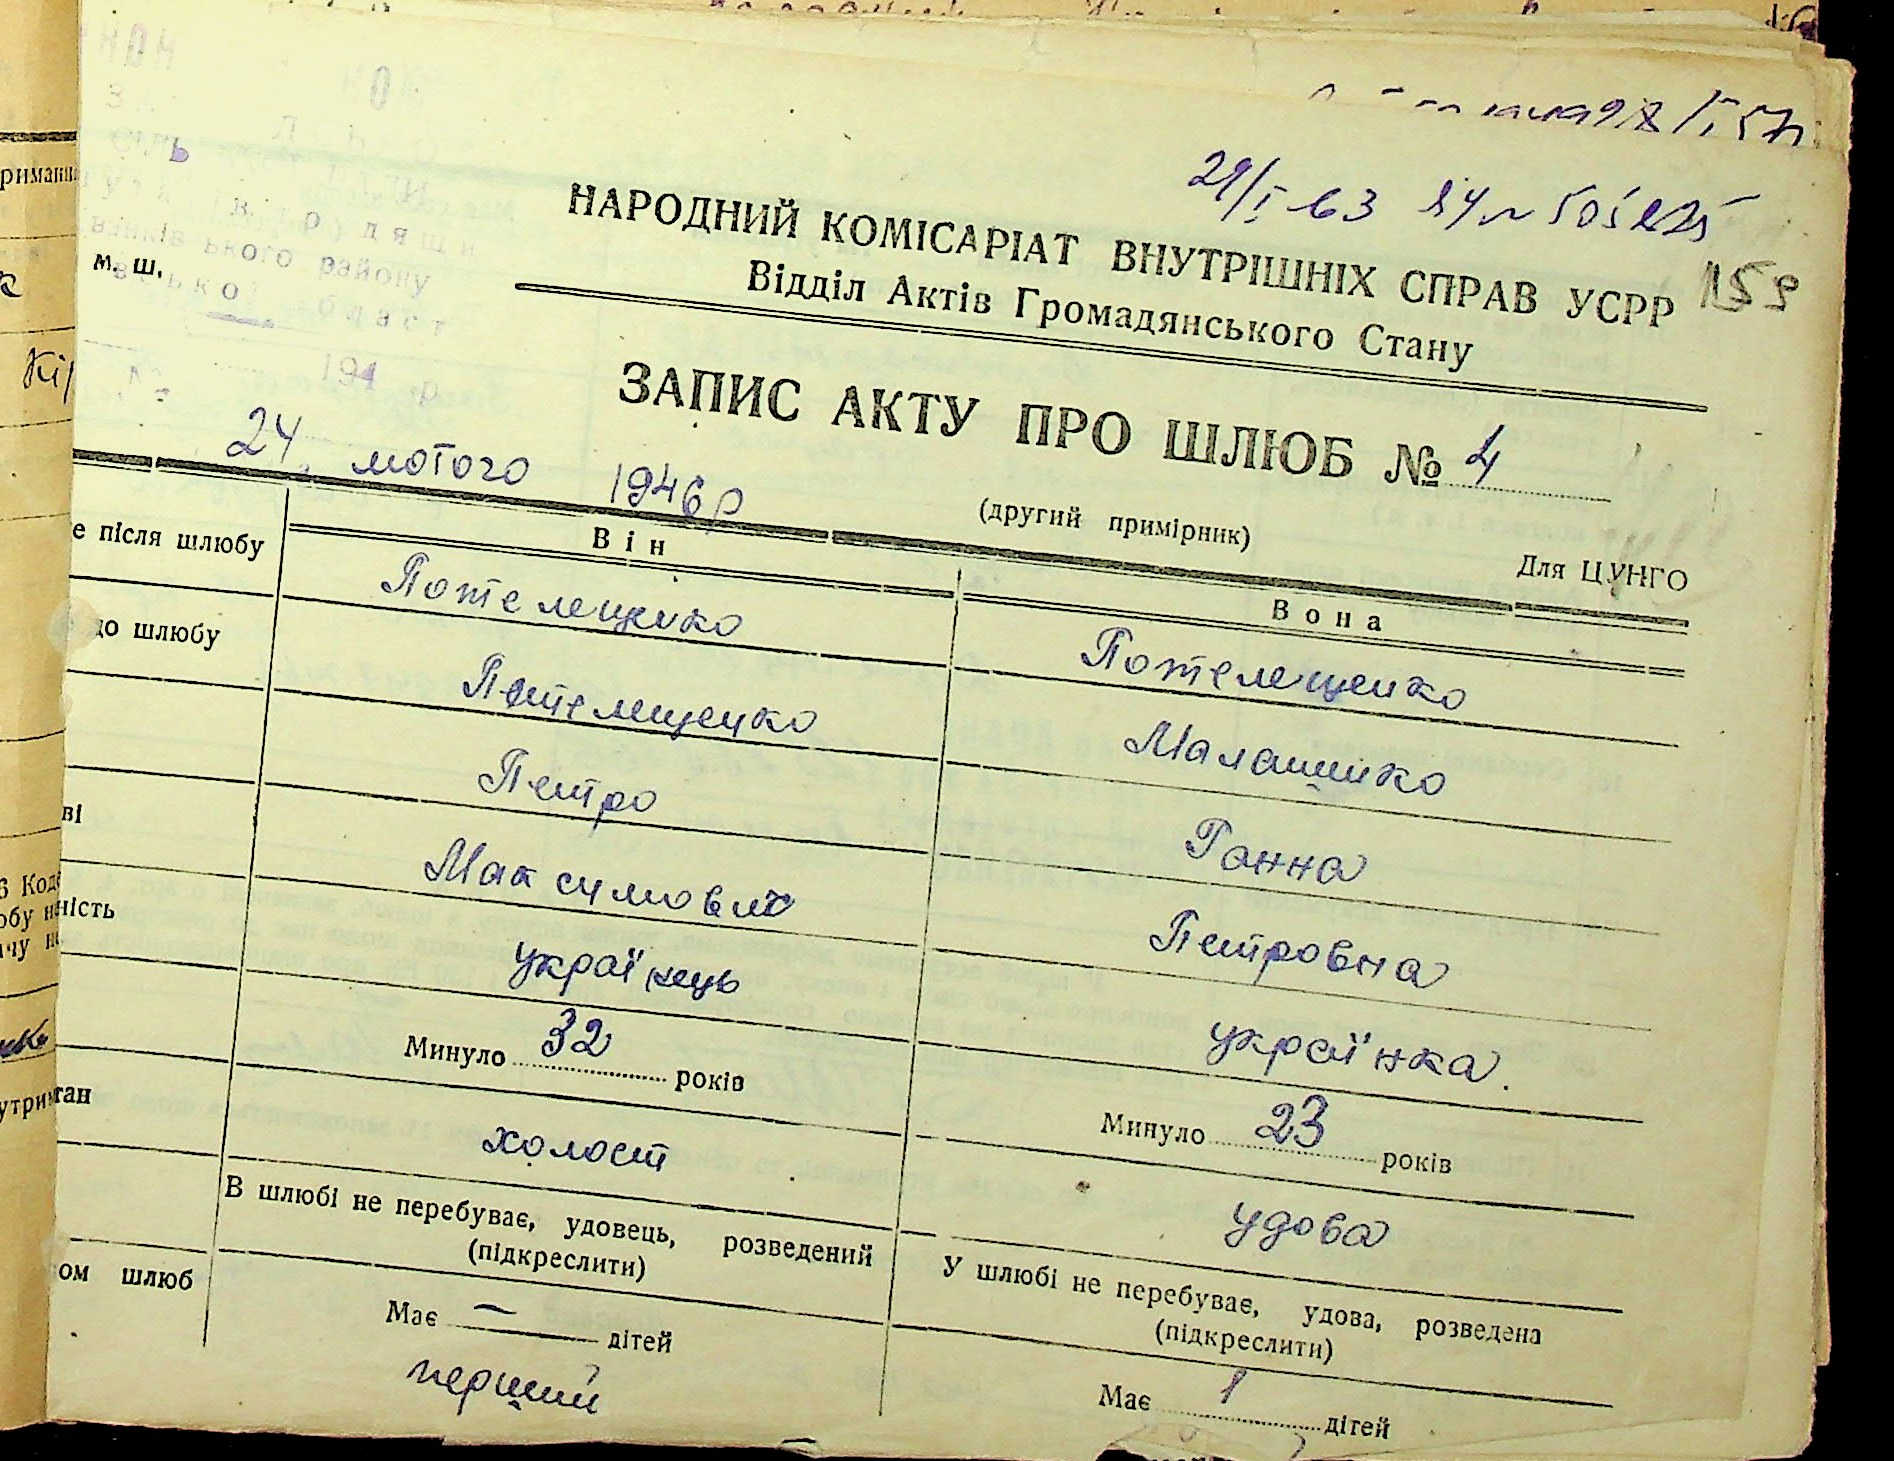 29/I-63
НАРОДНИЙ КОМІСАРІАТ ВНУТРІШНІХ СПРАВ УСРР
159
Відділ Актів Громадянського Стану
району
м. ш.
194 р
ЗАПИС АКТУ ПРО ШЛЮБ № 4
24 лютого 1946р
(другий примірник)
Для ЦУНГО
Він
Вона
е після шлюбу
Потелещенко
Потелещенко
до шлюбу
Потелещенко
Малашико
Петро
Ганна
ві
Максимович
Петровна
ність
українець
українка.
Минуло 32 років
Минуло 23 років
тан
холост
удова
В шлюбі не перебуває, удовець, розведений
(підкреслити)
У шлюбі не перебуває, удова, розведена
(підкреслити)
ом шлюб
Має — дітей
Має 1 дітей
перший